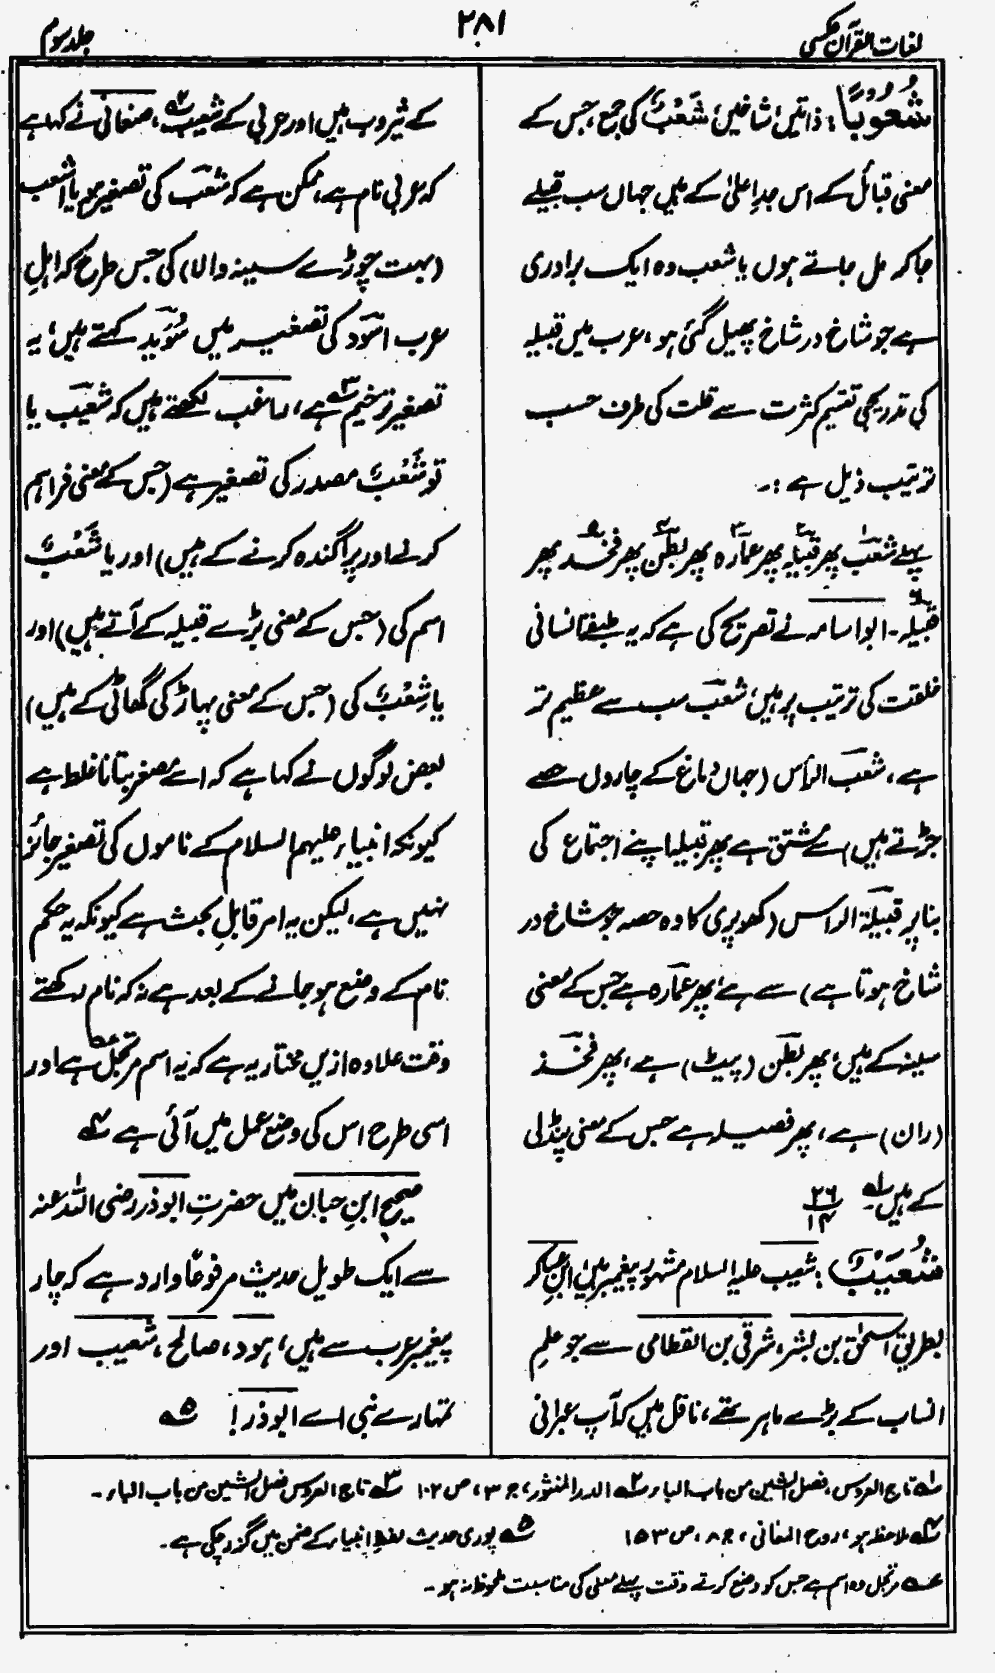 لغات القرآن عکسی
۲۸۱
جلد سوم
شُعُوْبًا: ذاتیں، شاخیں، شَعْبٌ کی جمع، جس کے
معنی قبائل کے اس جدِ اعلیٰ کے ہیں جہاں سب قبیلے
جاکر مل جاتے ہوں یا شعب وہ ایک برادری
ہے جو شاخ در شاخ پھیل گئی ہو، عرب میں قبیلہ
کی تدریجی تقسیم کثرت سے قلت کی طرف حسب
ترتیب ذیل ہے :۔
پہلے شعب پھر قبیلہ پھر عمارہ پھر بطن پھر فخذ پھر
فصیلہ۔ ابو اسامہ نے تصریح کی ہے کہ یہ طبقے انسانی
خلقت کی ترتیب پر ہیں، شعب سب سے عظیم تر
ہے، شعب الرأس (جہاں دماغ کے چاروں حصے
جڑتے ہیں) سے مشتق ہے پھر قبیلہ اپنے اجتماع کی
بنا پر قبیلۃ الراس (کھوپری کا وہ حصہ جو شاخ در
شاخ ہوتا ہے) سے ہے، پھر عمارہ ہے جس کے معنی
سینہ کے ہیں، پھر بطن (پیٹ) ہے، پھر فخذ
(ران) ہے، پھر فصیلہ ہے جس کے معنی پنڈلی
کے ہیں۔ ۱؎ ۲۶/۱۴
شُعَیْبٌ: شعیب علیہ السلام مشہور پیغمبر ہیں، ابن عساکر
بطریق اسحٰق بن بشر، شرقی بن القطامی سے جو علم
انساب کے بڑے ماہر تھے، ناقل ہیں کہ آپ عبرانی
کے یثروب ہیں اور عربی کے شعیب ۲؎، صنعانی نے کہا ہے
کہ عربی نام ہے، ممکن ہے کہ شعب کی تصغیر ہو یا اشعب
(بہت چوڑے سینہ والا) کی جس طرح کہ اہلِ
عرب اسود کی تصغیر میں سُوَید کہتے ہیں، یہ
تصغیر ترخیم ۳؎ ہے، راغب لکھتے ہیں کہ شعیب یا
تو شَعْبٌ مصدر کی تصغیر ہے (جس کے معنی فراہم
کرنے اور پراگندہ کرنے کے ہیں) اور یا شَعْبٌ
اسم کی (جس کے معنی بڑے قبیلہ کے آتے ہیں) اور
یا شِعْبٌ کی (جس کے معنی پہاڑ کی گھاٹی کے ہیں)
بعض لوگوں نے کہا ہے کہ اسے مصغر بتانا غلط ہے
کیونکہ انبیاء علیہم السلام کے ناموں کی تصغیر جائز
نہیں ہے، لیکن یہ امر قابلِ بحث ہے کیونکہ یہ حکم
نام کے وضع ہو جانے کے بعد ہے نہ کہ نام رکھتے
وقت علاوہ ازیں مختار یہ ہے کہ یہ اسم مرتجل عہ ہے اور
اسی طرح اس کی وضع عمل میں آئی ہے ۴؎
صحیح ابنِ حبان میں حضرتِ ابوذر رضی اللہ عنہ
سے ایک طویل حدیث مرفوعًا وارد ہے کہ چار
پیغمبر عرب سے ہیں، ہود، صالح، شعیب اور
تمہارے نبی اے ابوذر! ۵؎
۱؎ تاج العروس، فصل الشین من باب الباء ۲؎ الدر المنثور، ج ۳، ص ۱۰۲ ۳؎ تاج العروس فصل الشین من باب الباء۔
۴؎ ملاحظہ ہو، روح المعانی، ج ۸، ص ۱۵۳ ۵؎ پوری حدیث لفظِ انبیاء کے ضمن میں گزر چکی ہے۔
عہ مرتجل وہ اسم ہے جس کو وضع کرتے وقت پہلے معنی کی مناسبت ملحوظ نہ ہو۔